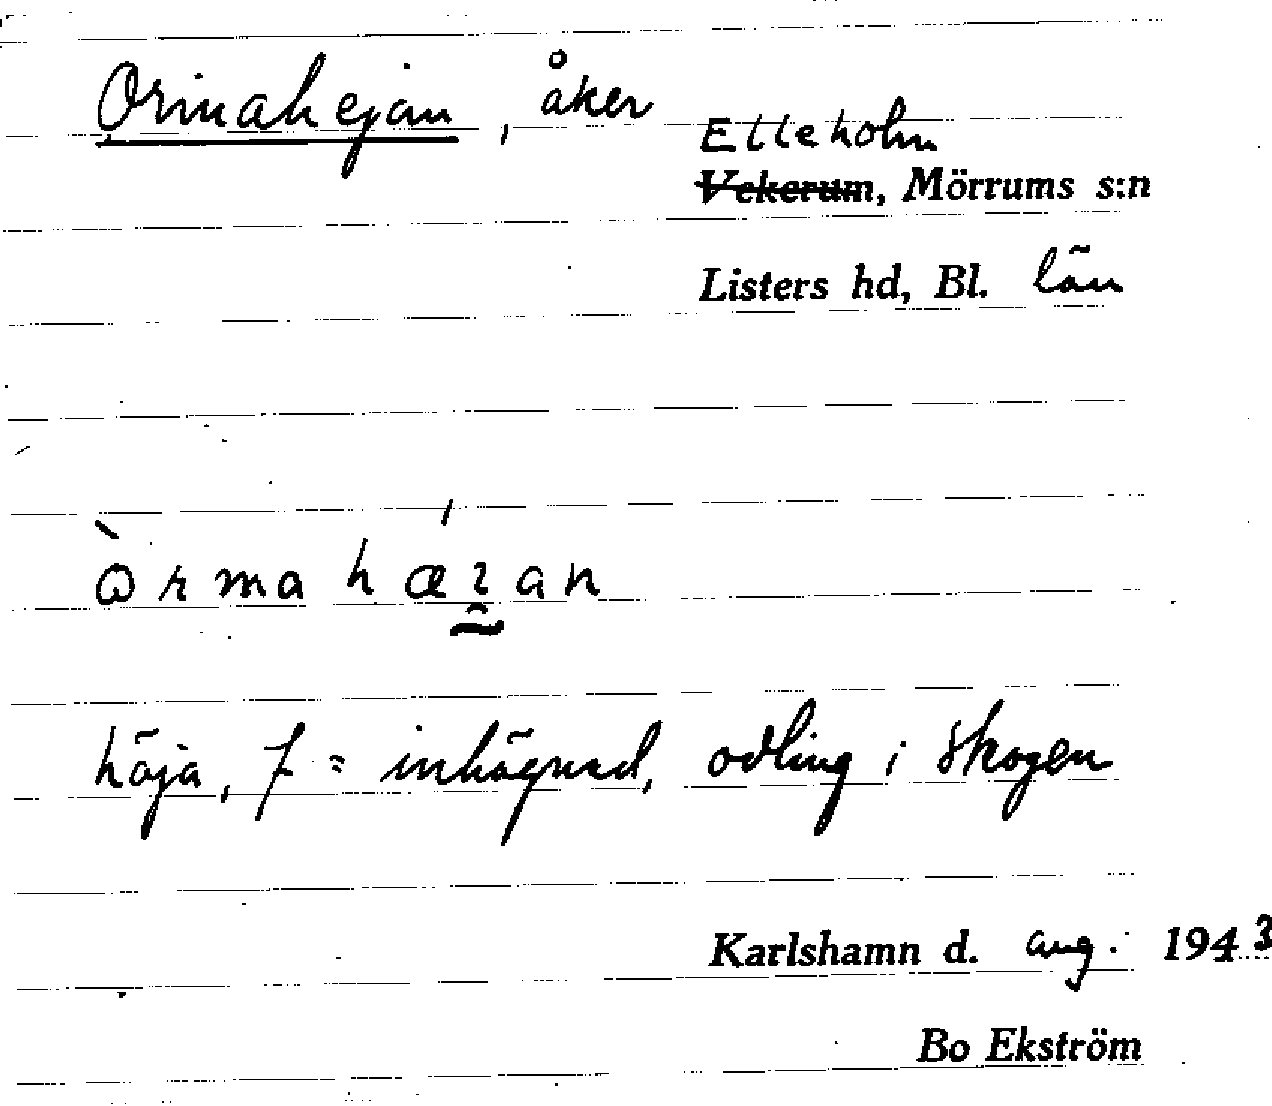 Ormahejan, åker
Elleholm
Vekerum, Mörrums s:n
Listers hd, Bl. län
òrmahǽɿan
häja, f = inhägnad, odling i skogen
Karlshamn d. aug. 1943
Bo Ekström